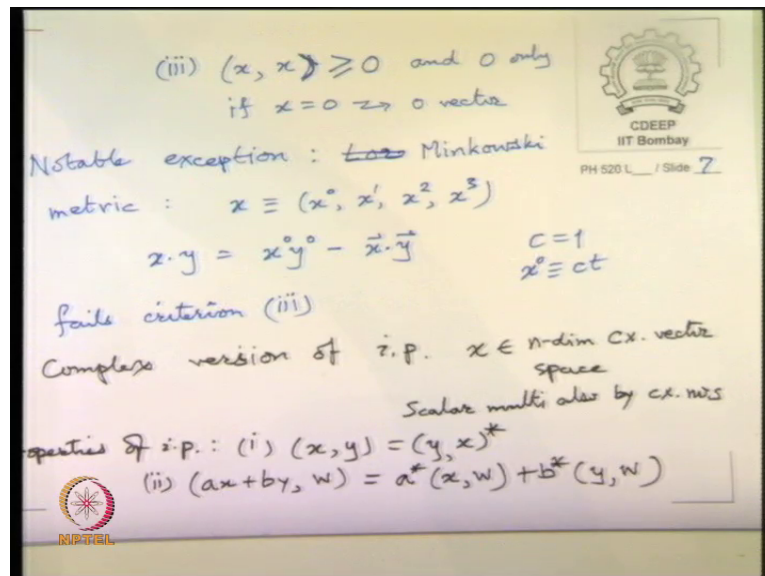 (iii) (x, x) ≥ 0 and 0 only
if x = 0 ↝ 0 vector
CDEEP
IIT Bombay
PH 520 L___ / Slide 7
Notable exception : Minkowski
metric : x ≡ (x⁰, x¹, x², x³)
x·y = x⁰y⁰ − x⃗·y⃗
c = 1
x⁰ ≡ ct
fails criterion (iii)
Complex version of i.p. x ∈ n-dim Cx. vector
space
Scalar multi also by cx. nos
operties of i.p. : (i) (x, y) = (y, x)*
(ii) (ax + by, w) = a*(x, w) + b*(y, w)
NPTEL